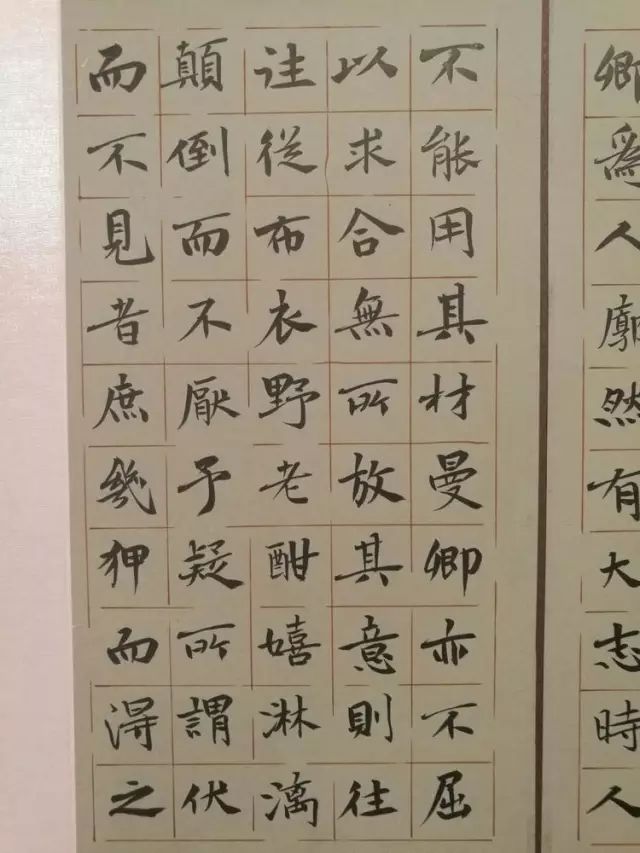 卿為人廓然有大志時人
不能用其材曼卿亦不屈
以求合無所放其意則往
往從布衣野老酣嬉淋漓
顛倒而不厭予疑所謂伏
而不見者庶幾狎而得之